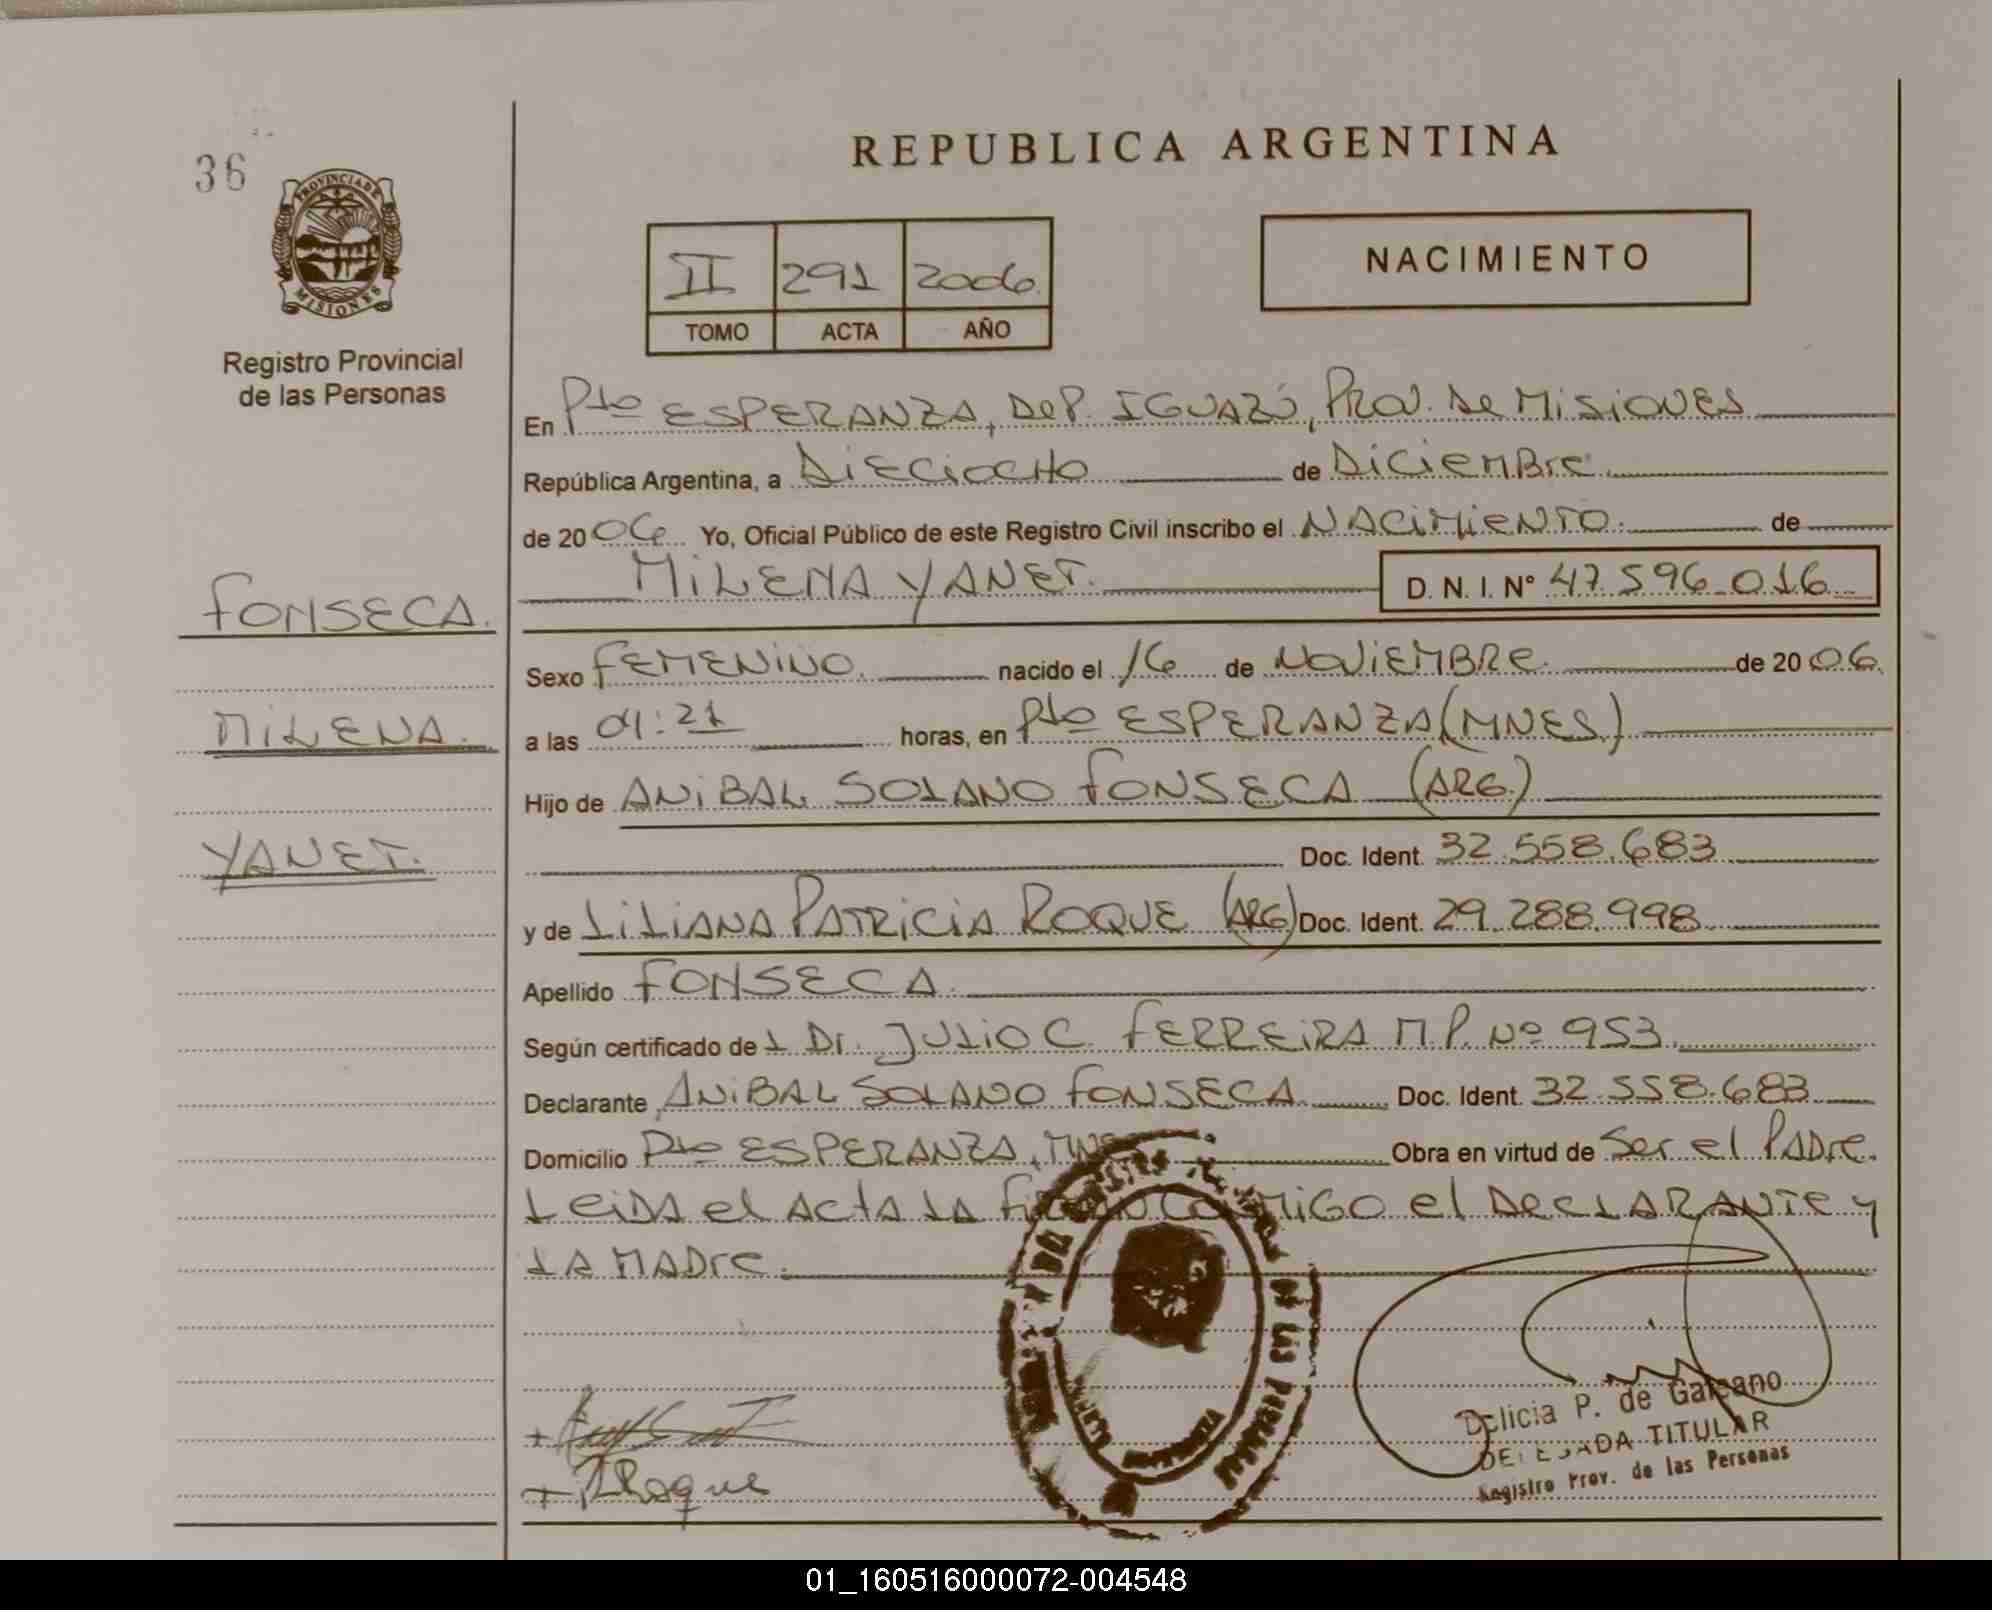 36
PROVINCIA DE
MISIONES
Registro Provincial
de las Personas
FONSECA.
MILENA.
YANET.
REPUBLICA ARGENTINA
II 291 2006.
TOMO ACTA AÑO
NACIMIENTO
En Pto ESPERANZA, DeP. IGUAZÚ, PROV. De MISIONES
República Argentina, a DIECIOCHO de DICIEMBre.
de 2006 Yo, Oficial Público de este Registro Civil inscribo el NACIMIENTO. de
MILENA YANET. D. N. I. N° 47.596.016
Sexo FEMENINO. nacido el 16 de NOVIEMBRe. de 2006.
a las 01:21 horas, en Pto ESPERANZA (MNES)
Hijo de ANIBAL SOLANO FONSECA (ARG.)
Doc. Ident. 32.558.683
y de LILIANA PATRICIA ROQUE (ARG) Doc. Ident. 29.288.998
Apellido FONSECA.
Según certificado de L Dr. JULIO C. FERREIRA M.P. Nº 953.
Declarante ANIBAL SOLANO FONSECA. Doc. Ident. 32.558.683
Domicilio Pto ESPERANZA, Obra en virtud de Ser el PADre.
LeiDA el ACTA LA el DeCLARANTe y
LA MADre.
DE LAS
Roque
Delicia P. de Galeano
DELEGADA TITULAR
Registro Prov. de las Personas
01_160516000072-004548